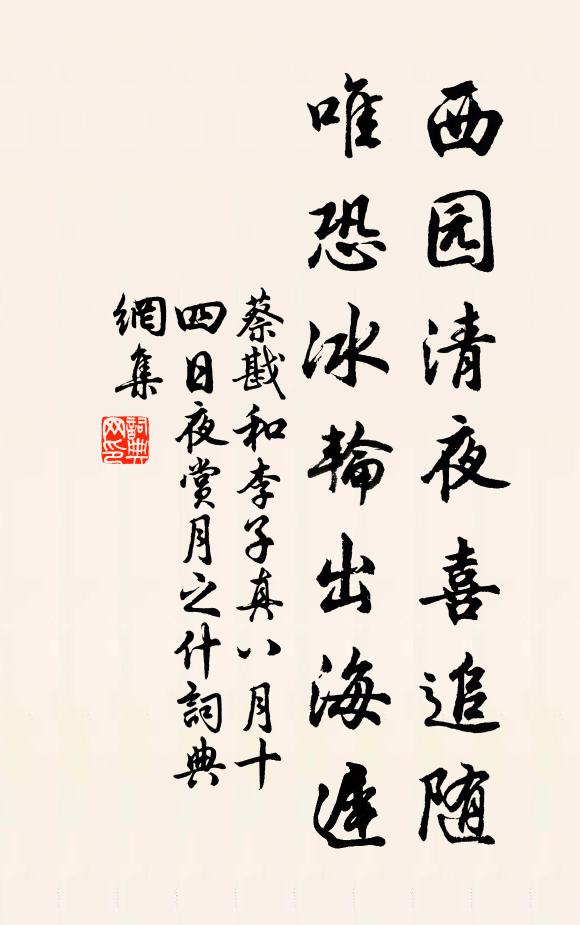 西园清夜喜追随
唯恐冰輪出海遲
蔡戡和李子真八月十
四日夜赏月之什詞典
網集
詞典
网印